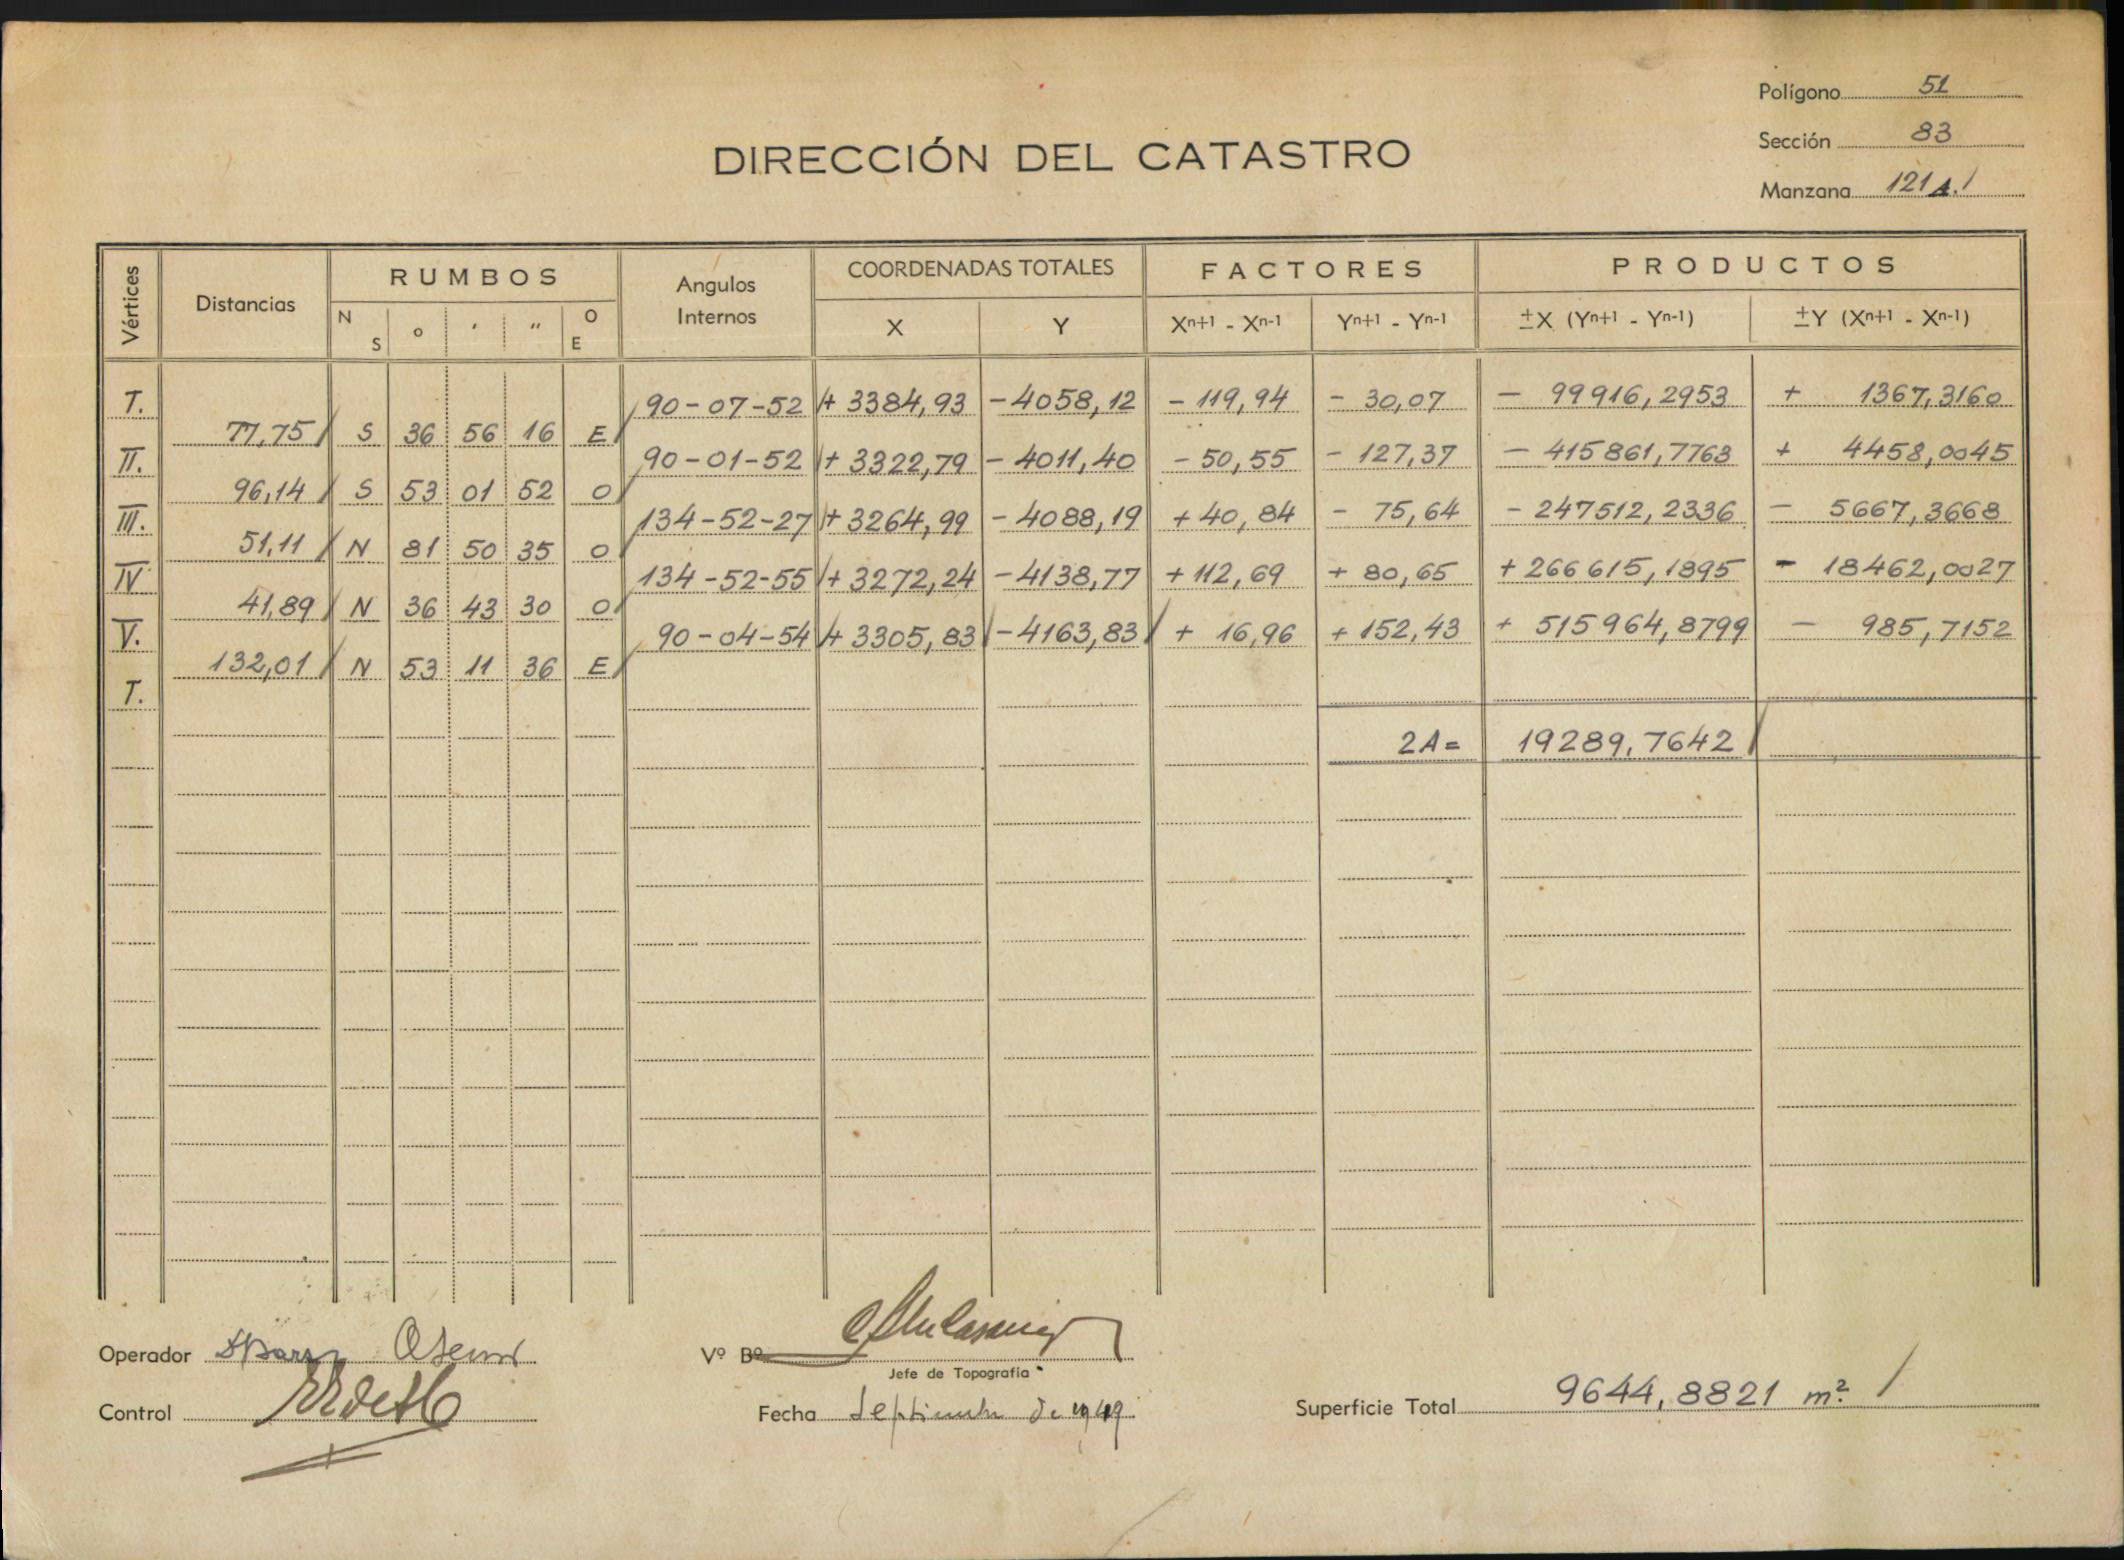 Polígono 51
Sección 83
DIRECCIÓN DEL CATASTRO
Manzana 121 A.
Vértices Distancias RUMBOS Angulos Internos COORDENADAS TOTALES FACTORES PRODUCTOS
N S o ' " O E X Y Xn+1 - Xn-1 Yn+1 - Yn-1 ±X (Yn+1 - Yn-1) ±Y (Xn+1 - Xn-1)
I. 90-07-52 + 3384,93 - 4058,12 - 119,94 - 30,07 - 99916,2953 + 1367,3160
77,75 S 36 56 16 E
II. 90-01-52 + 3322,79 - 4011,40 - 50,55 - 127,37 - 415861,7763 + 4458,0045
96,14 S 53 01 52 O
III. 134-52-27 + 3264,99 - 4088,19 + 40,84 - 75,64 - 247512,2336 - 5667,3668
51,11 N 81 50 35 O
IV 134-52-55 + 3272,24 - 4138,77 + 112,69 + 80,65 + 266615,1895 - 18462,0027
41,89 N 36 43 30 O
V. 90-04-54 + 3305,83 - 4163,83 + 16,96 + 152,43 + 515964,8799 - 985,7152
132,01 N 53 11 36 E
I.
2A = 19289,7642
Operador
Vº Bº
Jefe de Topografía
Control
Fecha Septiembre de 1949
Superficie Total 9644,8821 m2.